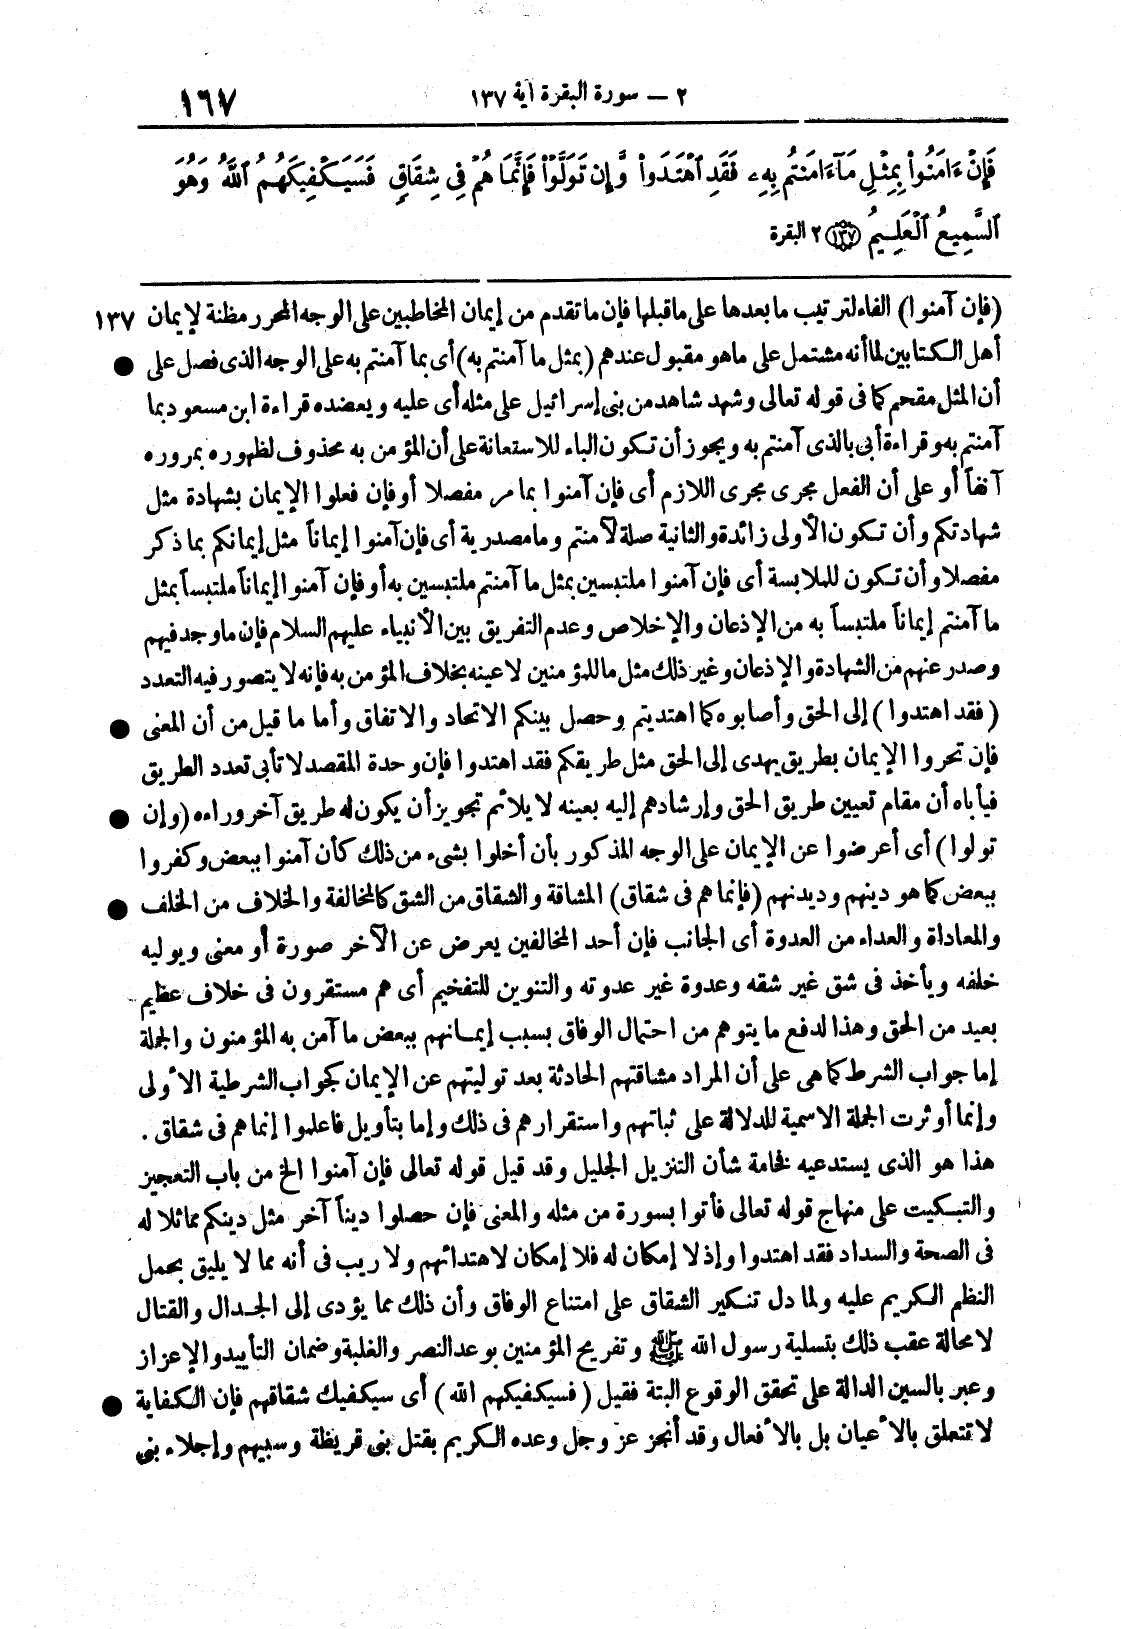 ٢ — سورة البقرة آية ١٣٧
١٦٧
فَإِنْ ءَامَنُوا۟ بِمِثْلِ مَآ ءَامَنتُم بِهِۦ فَقَدِ ٱهْتَدَوا۟ وَّإِن تَوَلَّوْا۟ فَإِنَّمَا هُمْ فِى شِقَاقٍ فَسَيَكْفِيكَهُمُ ٱللَّهُ وَهُوَ
ٱلسَّمِيعُ ٱلْعَلِيمُ ١٣٧ ٢ البقرة
(فإن آمنوا) الفاء لترتيب ما بعدها على ما قبلها فإن ما تقدم من إيمان المخاطبين على الوجه المحرر مظنة لإيمان ١٣٧
أهل الكتابين لما أنه مشتمل على ما هو مقبول عندهم (بمثل ما آمنتم به) أى بما آمنتم به على الوجه الذى فصل على ●
أن المثل مقحم كما فى قوله تعالى وشهد شاهد من بنى إسرائيل على مثله أى عليه ويعضده قراءة ابن مسعود بما
آمنتم به وقراءة أبى بالذى آمنتم به ويجوز أن تكون الباء للاستعانة على أن المؤمن به محذوف لظهوره بمروره
آنفاً أو على أن الفعل مجرى مجرى اللازم أى فإن آمنوا بما مر مفصلا أو فإن فعلوا الإيمان بشهادة مثل
شهادتكم وأن تكون الأولى زائدة والثانية صلة لآمنتم وما مصدرية أى فإن آمنوا إيماناً مثل إيمانكم بما ذكر
مفصلا وأن تكون للملابسة أى فإن آمنوا ملتبسين بمثل ما آمنتم ملتبسين به أو فإن آمنوا إيماناً ملتبساً بمثل
ما آمنتم إيماناً ملتبساً به من الإذعان والإخلاص وعدم التفريق بين الأنبياء عليهم السلام فإن ما وجد فيهم
وصدر عنهم من الشهادة والإذعان وغير ذلك مثل ما للمؤمنين لا عينه بخلاف المؤمن به فإنه لا يتصور فيه التعدد
(فقد اهتدوا) إلى الحق وأصابوه كما اهتديتم وحصل بينكم الاتحاد والاتفاق وأما ما قيل من أن المعنى ●
فإن تحروا الإيمان بطريق يهدى إلى الحق مثل طريقكم فقد اهتدوا فإن وحدة المقصد لا تأبى تعدد الطريق
فيأباه أن مقام تعيين طريق الحق وإرشادهم إليه بعينه لا يلائم تجويز أن يكون له طريق آخر وراءه (وإن ●
تولوا) أى أعرضوا عن الإيمان على الوجه المذكور بأن أخلوا بشىء من ذلك كأن آمنوا ببعض وكفروا
ببعض كما هو دينهم وديدنهم (فإنما هم فى شقاق) المشاقة والشقاق من الشق كالمخالفة والخلاف من الخلف ●
والمعاداة والعداء من العدوة أى الجانب فإن أحد المخالفين يعرض عن الآخر صورة أو معنى ويوليه
خلفه ويأخذ فى شق غير شقه وعدوة غير عدوته والتنوين للتفخيم أى هم مستقرون فى خلاف عظيم
بعيد من الحق وهذا لدفع ما يتوهم من احتمال الوفاق بسبب إيمانهم ببعض ما آمن به المؤمنون والجملة
إما جواب الشرط كما هى على أن المراد مشاقتهم الحادثة بعد توليتهم عن الإيمان كجواب الشرطية الأولى
وإنما أوثرت الجملة الاسمية للدلالة على ثباتهم واستقرارهم فى ذلك وإما بتأويل فاعلموا إنما هم فى شقاق .
هذا هو الذى يستدعيه فخامة شأن التنزيل الجليل وقد قيل قوله تعالى فإن آمنوا الخ من باب التعجيز
والتبكيت على منهاج قوله تعالى فأتوا بسورة من مثله والمعنى فإن حصلوا ديناً آخر مثل دينكم مماثلا له
فى الصحة والسداد فقد اهتدوا وإذ لا إمكان له فلا إمكان لاهتدائهم ولا ريب فى أنه مما لا يليق بحمل
النظم الكريم عليه ولما دل تنكير الشقاق على امتناع الوفاق وأن ذلك مما يؤدى إلى الجدال والقتال
لا محالة عقب ذلك بتسلية رسول الله ﷺ وتفريح المؤمنين بوعد النصر والغلبة وضمان التأييد والإعزاز
وعبر بالسين الدالة على تحقق الوقوع البتة فقيل (فسيكفيكهم الله) أى سيكفيك شقاقهم فإن الكفاية ●
لا تتعلق بالأعيان بل بالأفعال وقد أنجز عز وجل وعده الكريم بقتل بنى قريظة وسبيهم وإجلاء بنى